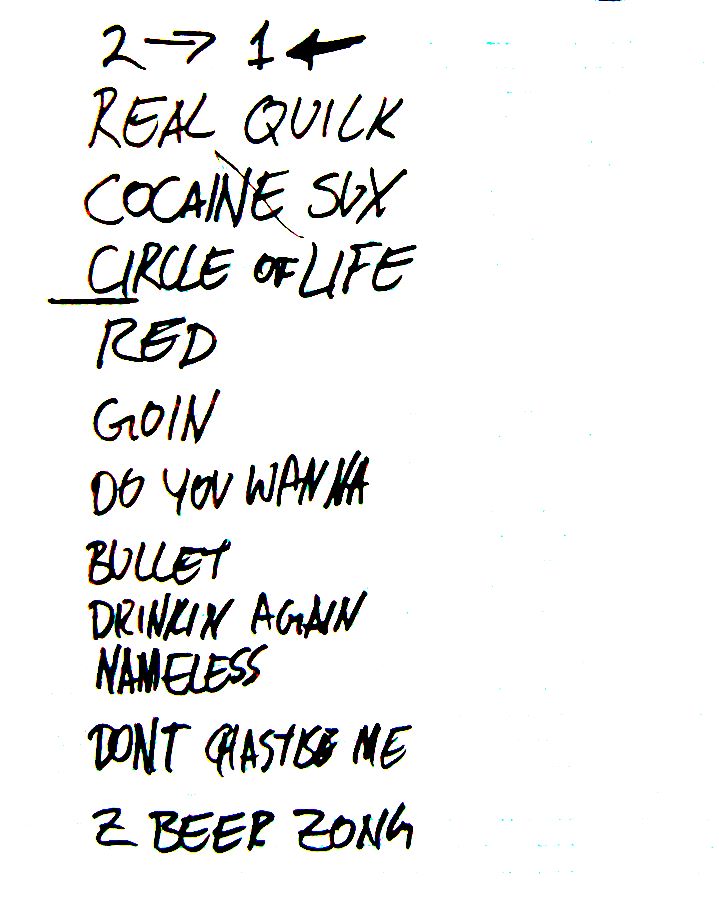 2 → 1 ←
REAL QUICK
COCAINE SUX
CIRCLE OF LIFE
RED
GOIN
DO YOU WANNA
BULLET
DRINKIN AGAIN
NAMELESS
DONT CHASTISE ME
Z BEER ZONG